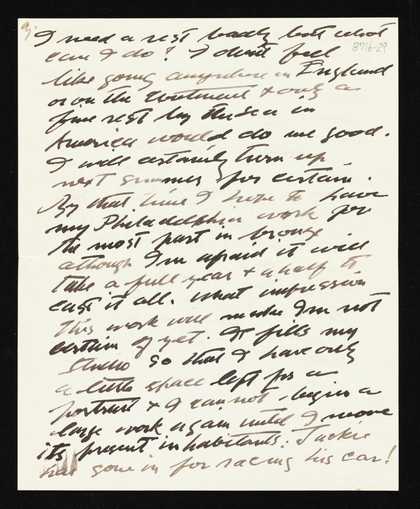 2)
8716-29
I need a rest badly but what
can I do? I don't feel
like going anywhere in England
or on the Continent & only a
fine rest by the sea in
America would do me good.
I will certainly turn up
next summer for certain.
By that time I hope to have
my Philadelphia work for
the most part in bronze
although I'm afraid it will
take a full year & a half to
cast it all. What impression
this work will make I'm not
certain of yet. It fills my
studio so that I have only
a little space left for a
portrait & I cannot begin a
large work again until I move
its present inhabitants. Jackie
has gone in for racing his car!